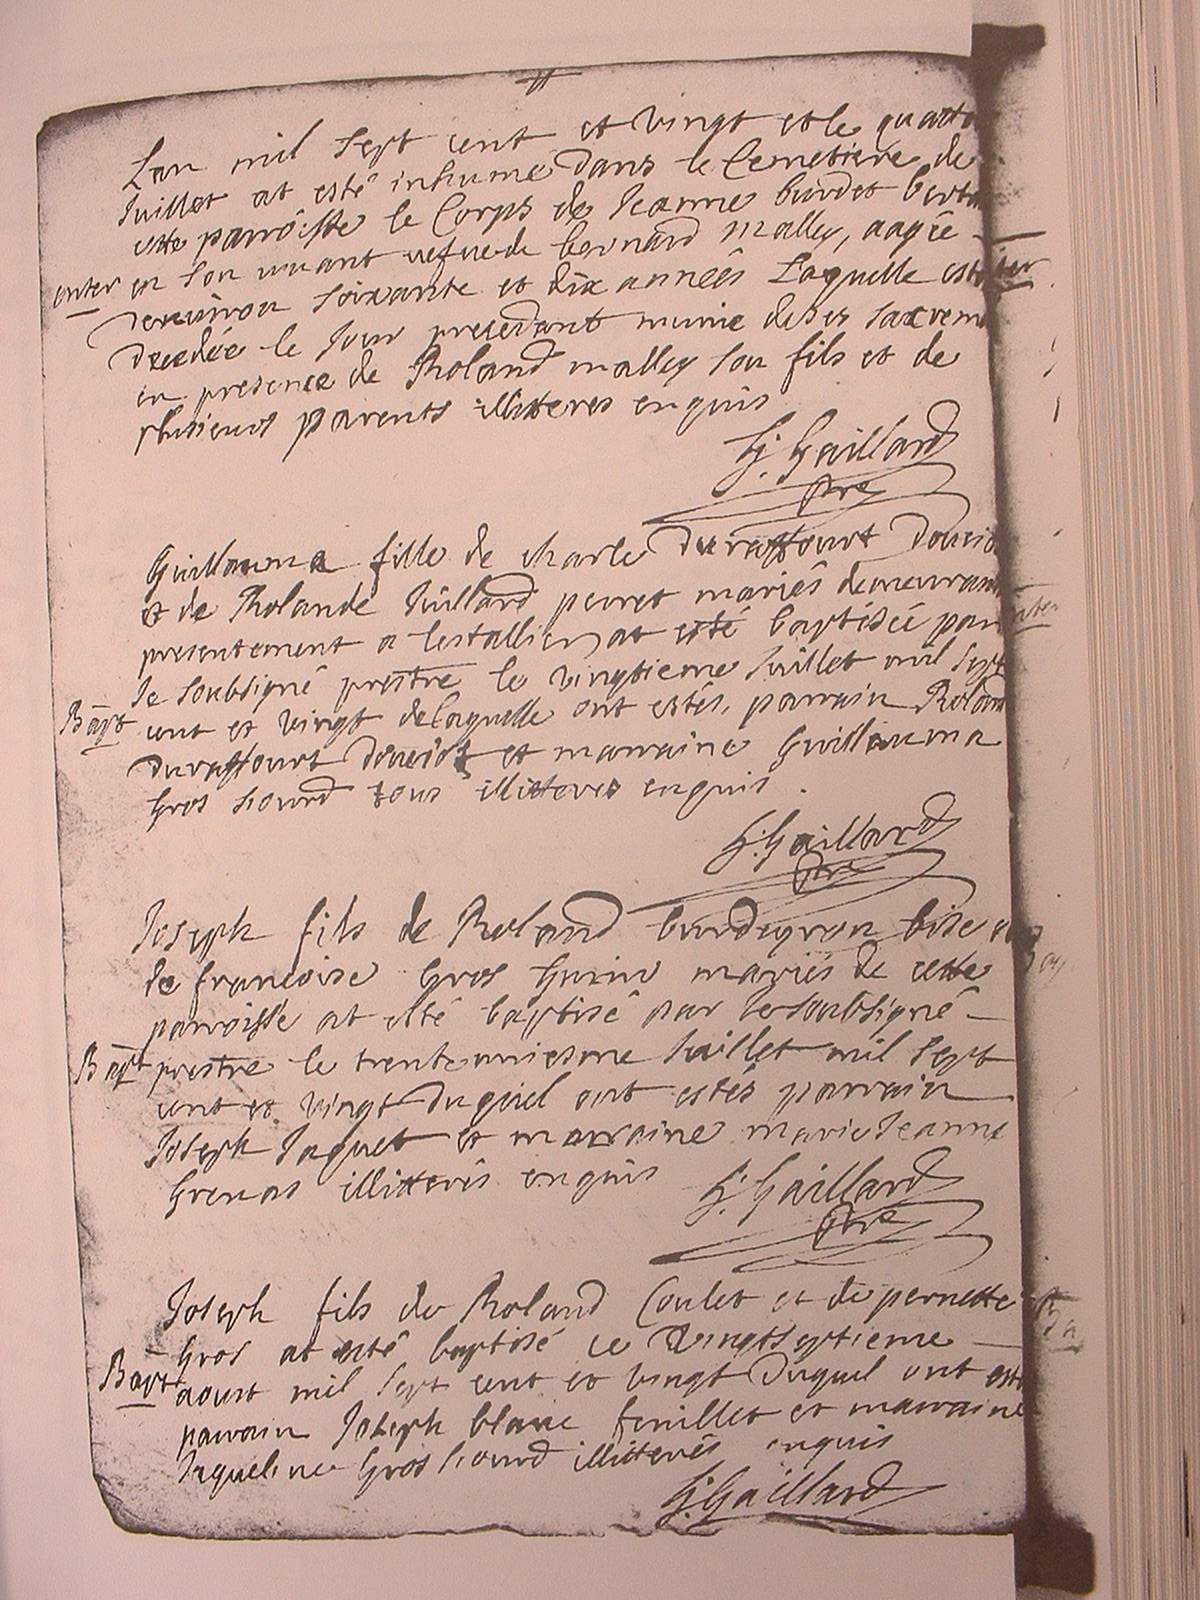 Lan mil sept cent et vingt et le quatto
Juillet at esté inhumé dans le Cemetiere de
cette parroisse le Corps de Jeanne burdet
enter en son vivant vefve de bernard malley, aagée
denviron soixante et dix années Laquelle est
decedée le Jour precedant munie de ses sacrem
en presence de Roland malley son fils et de
plusieurs parents illitteres enquis
G. Gaillard
pre
Guillauma fille de charle duraffourt
et de Rolande Juillard perret mariés demeurant
presentement a lestallier at esté baptisée par
Je soubsigné prestre le vingtieme Juillet mil sept
Bapt cent et vingt de laquelle ont estés, parrain Rolan
duraffourt et marraine Guillauma
Gros tous illitteres enquis.
G. Gaillard
pre
Joseph fils de Roland bise et
de francoise Gros Gurin mariés de cette
parroisse at esté baptisé par Je soubsigné
Bapt prestre le trenteuniesme Juillet mil sept
cent et vingt duquel ont estés parrain
Joseph Jaquet et marraine marie Jeanne
Grenas illitterés enquis
G. Gaillard
pre
Joseph fils de Roland Coulet et de pernette
Gros at esté baptisé le vingtseptieme
Bapt aoust mil sept cent et vingt duquel ont esté
parrain Joseph blanc feuillet et marraine
Jaqueline Gros illitterés enquis
G. Gaillard